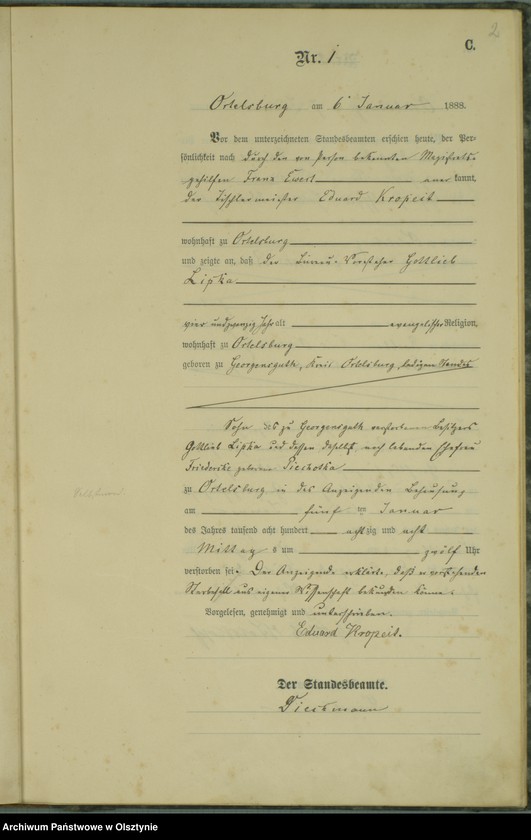 2
C.
Nr. 1
Ortelsburg am 6 Januar 1888.
Vor dem unterzeichneten Standesbeamten erschien heute, der Per-
sönlichkeit nach durch den von Person bekannten Magistrats-
gehilfen Franz Ewert anerkannt,
der Tischlermeister Eduard Kropeit
wohnhaft zu Ortelsburg
und zeigte an, daß der Büreau-Vorsteher Gottlieb
Lipka
vier und zwanzig Jahr alt evangelischer Religion,
wohnhaft zu Ortelsburg
geboren zu Georgensguth, Kreis Ortelsburg, ledigen Standes
Sohn des zu Georgensguth verstorbenen Besitzers
Gottlieb Lipka und dessen daselbst noch lebenden Ehefrau
Friederike geborene Piechottka
zu Ortelsburg in des Anzeigenden Behausung
am fünf ten Januar
des Jahres tausend acht hundert achtzig und acht
Mittags um zwölf Uhr
verstorben sei. Der Anzeigende erklärte, daß er vorstehenden
Sterbefall aus eigener Wissenschaft bekunden könne.
Vorgelesen, genehmigt und unterschrieben.
Eduard Kropeit.
Der Standesbeamte.
Dieckmann
Archiwum Państwowe w Olsztynie